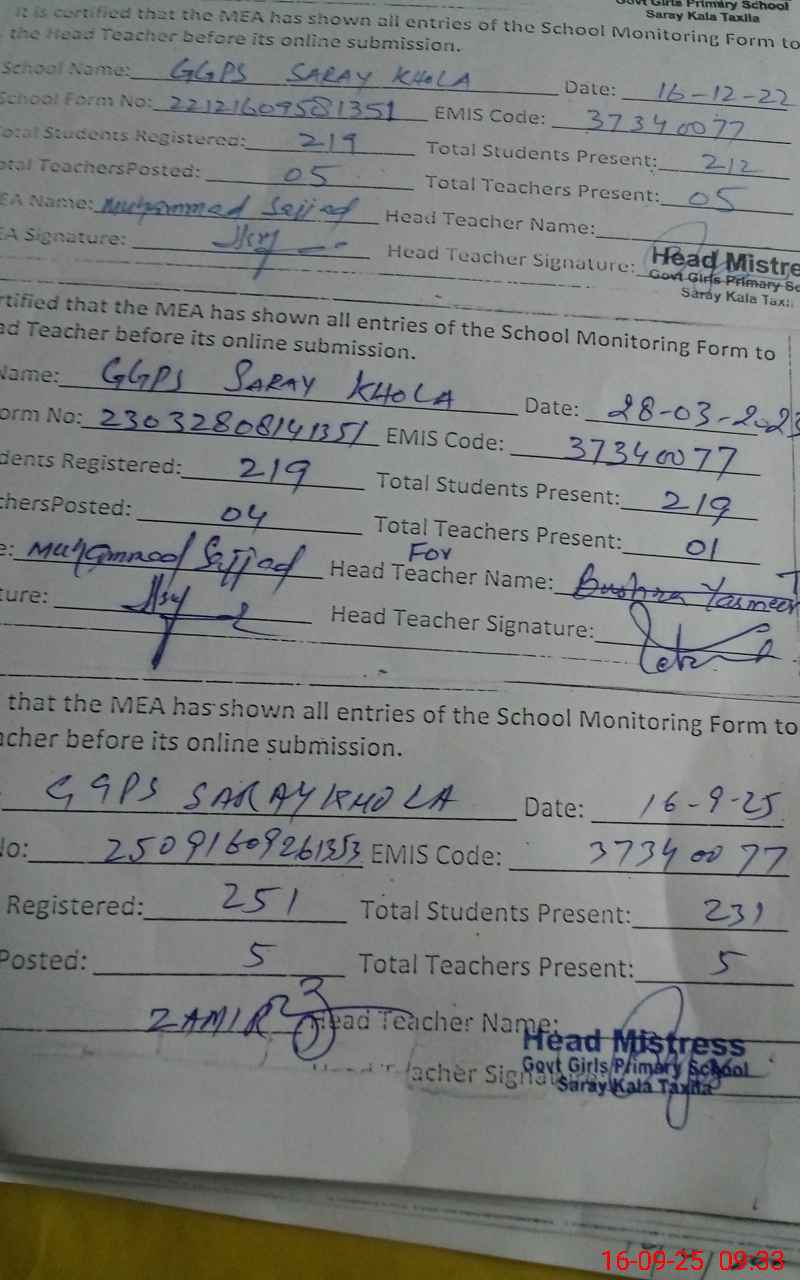 Govt Girls Primary School
Saray Kala Taxila
It is certified that the MEA has shown all entries of the School Monitoring Form to
the Head Teacher before its online submission.
School Name: GGPS SARAY KHOLA Date: 16-12-22
School Form No: 22121609581351 EMIS Code: 37340077
otal Students Registered: 219 Total Students Present: 212
otal TeachersPosted: 05 Total Teachers Present: 05
EA Name: Muhammad Sajjad Head Teacher Name:
EA Signature: Head Teacher Signature:
Head Mistre
Govt Girls Primary Sc
Saray Kala Taxi
rtified that the MEA has shown all entries of the School Monitoring Form to
ad Teacher before its online submission.
Name: GGPS SARAY KHOLA Date: 28-03-2023
orm No: 23032808141351 EMIS Code: 37340077
dents Registered: 219 Total Students Present: 219
chersPosted: 04 Total Teachers Present: 01
e: Muhammad Sajjad For Head Teacher Name: Bushra Yasmeen
ture: Head Teacher Signature:
that the MEA has shown all entries of the School Monitoring Form to
acher before its online submission.
GGPS SARAY KHOLA Date: 16-9-25
No: 25091609261353 EMIS Code: 37340077
Registered: 251 Total Students Present: 231
Posted: 5 Total Teachers Present: 5
ZAMIR Head Teacher Name:
acher Signature
Head Mistress
Govt Girls Primary School
Saray Kala Taxila
16-09-25/ 09:33